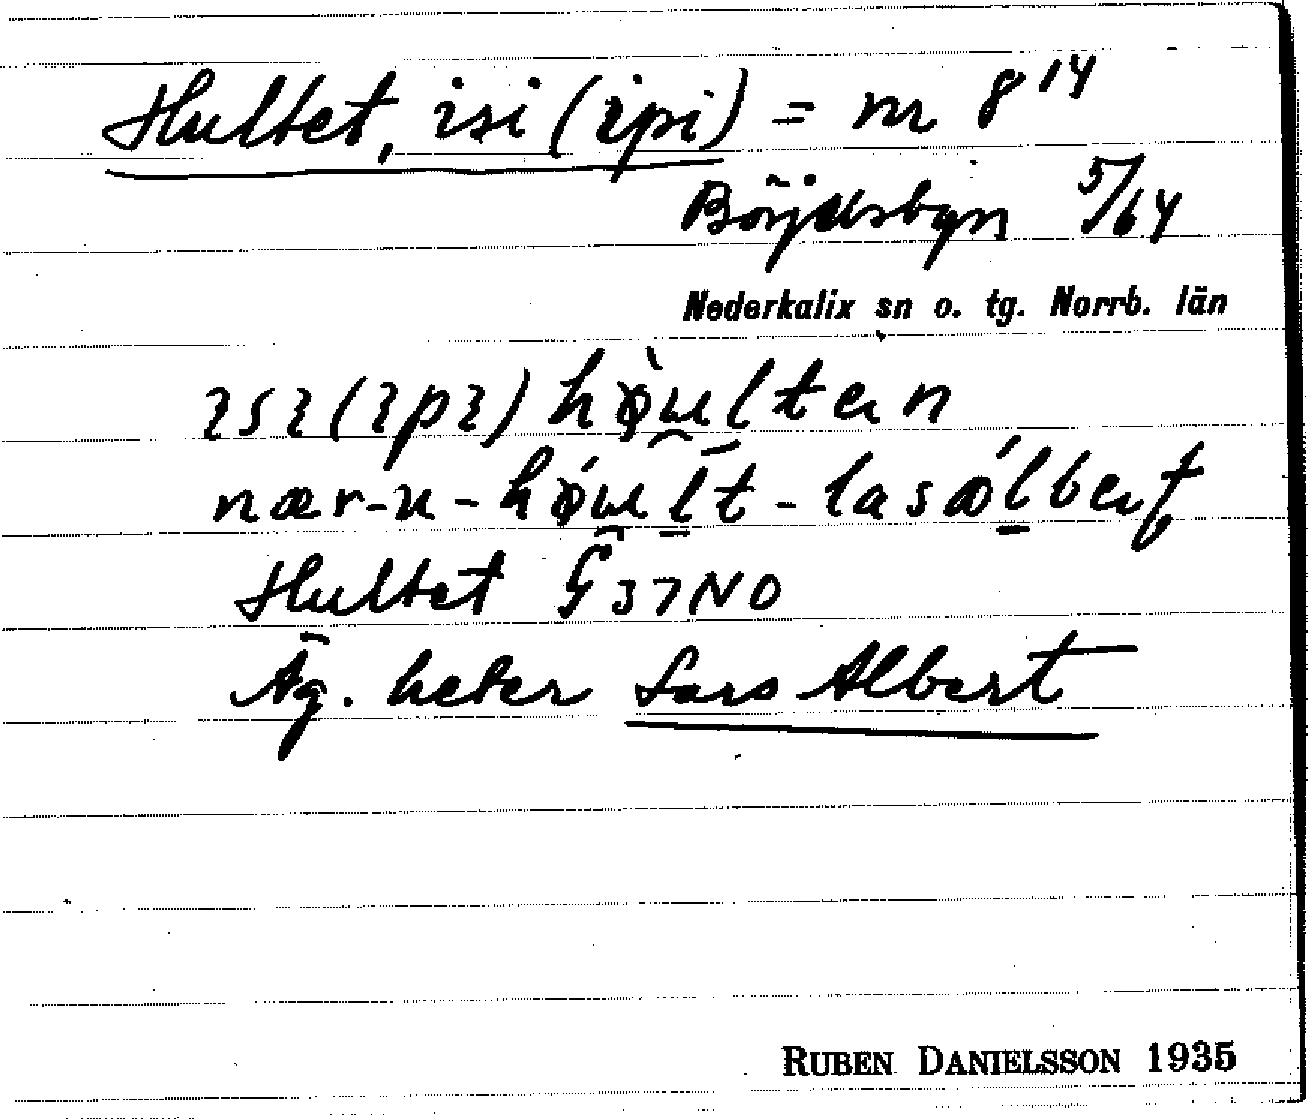 Hultet, isi (ipi) = nr 8¹⁴
Börjelsbyn 5/64
Nederkalix sn o. tg. Norrb. län
ısı (ıpı) hø̀ultən
nær-u-hǿult-lasǽlbəʈ
Hultet G37NO
Äg. heter Lars Albert
RUBEN DANIELSSON 1935